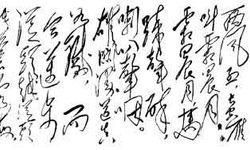 西风烈长空雁
叫霜晨月
霜晨月马
蹄声碎
喇叭声咽
雄关漫道真
如铁而
今迈步
从头越